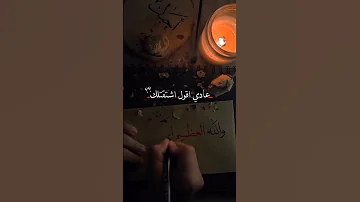 عادي اقول اشتقتلك؟؟
والله العظيم